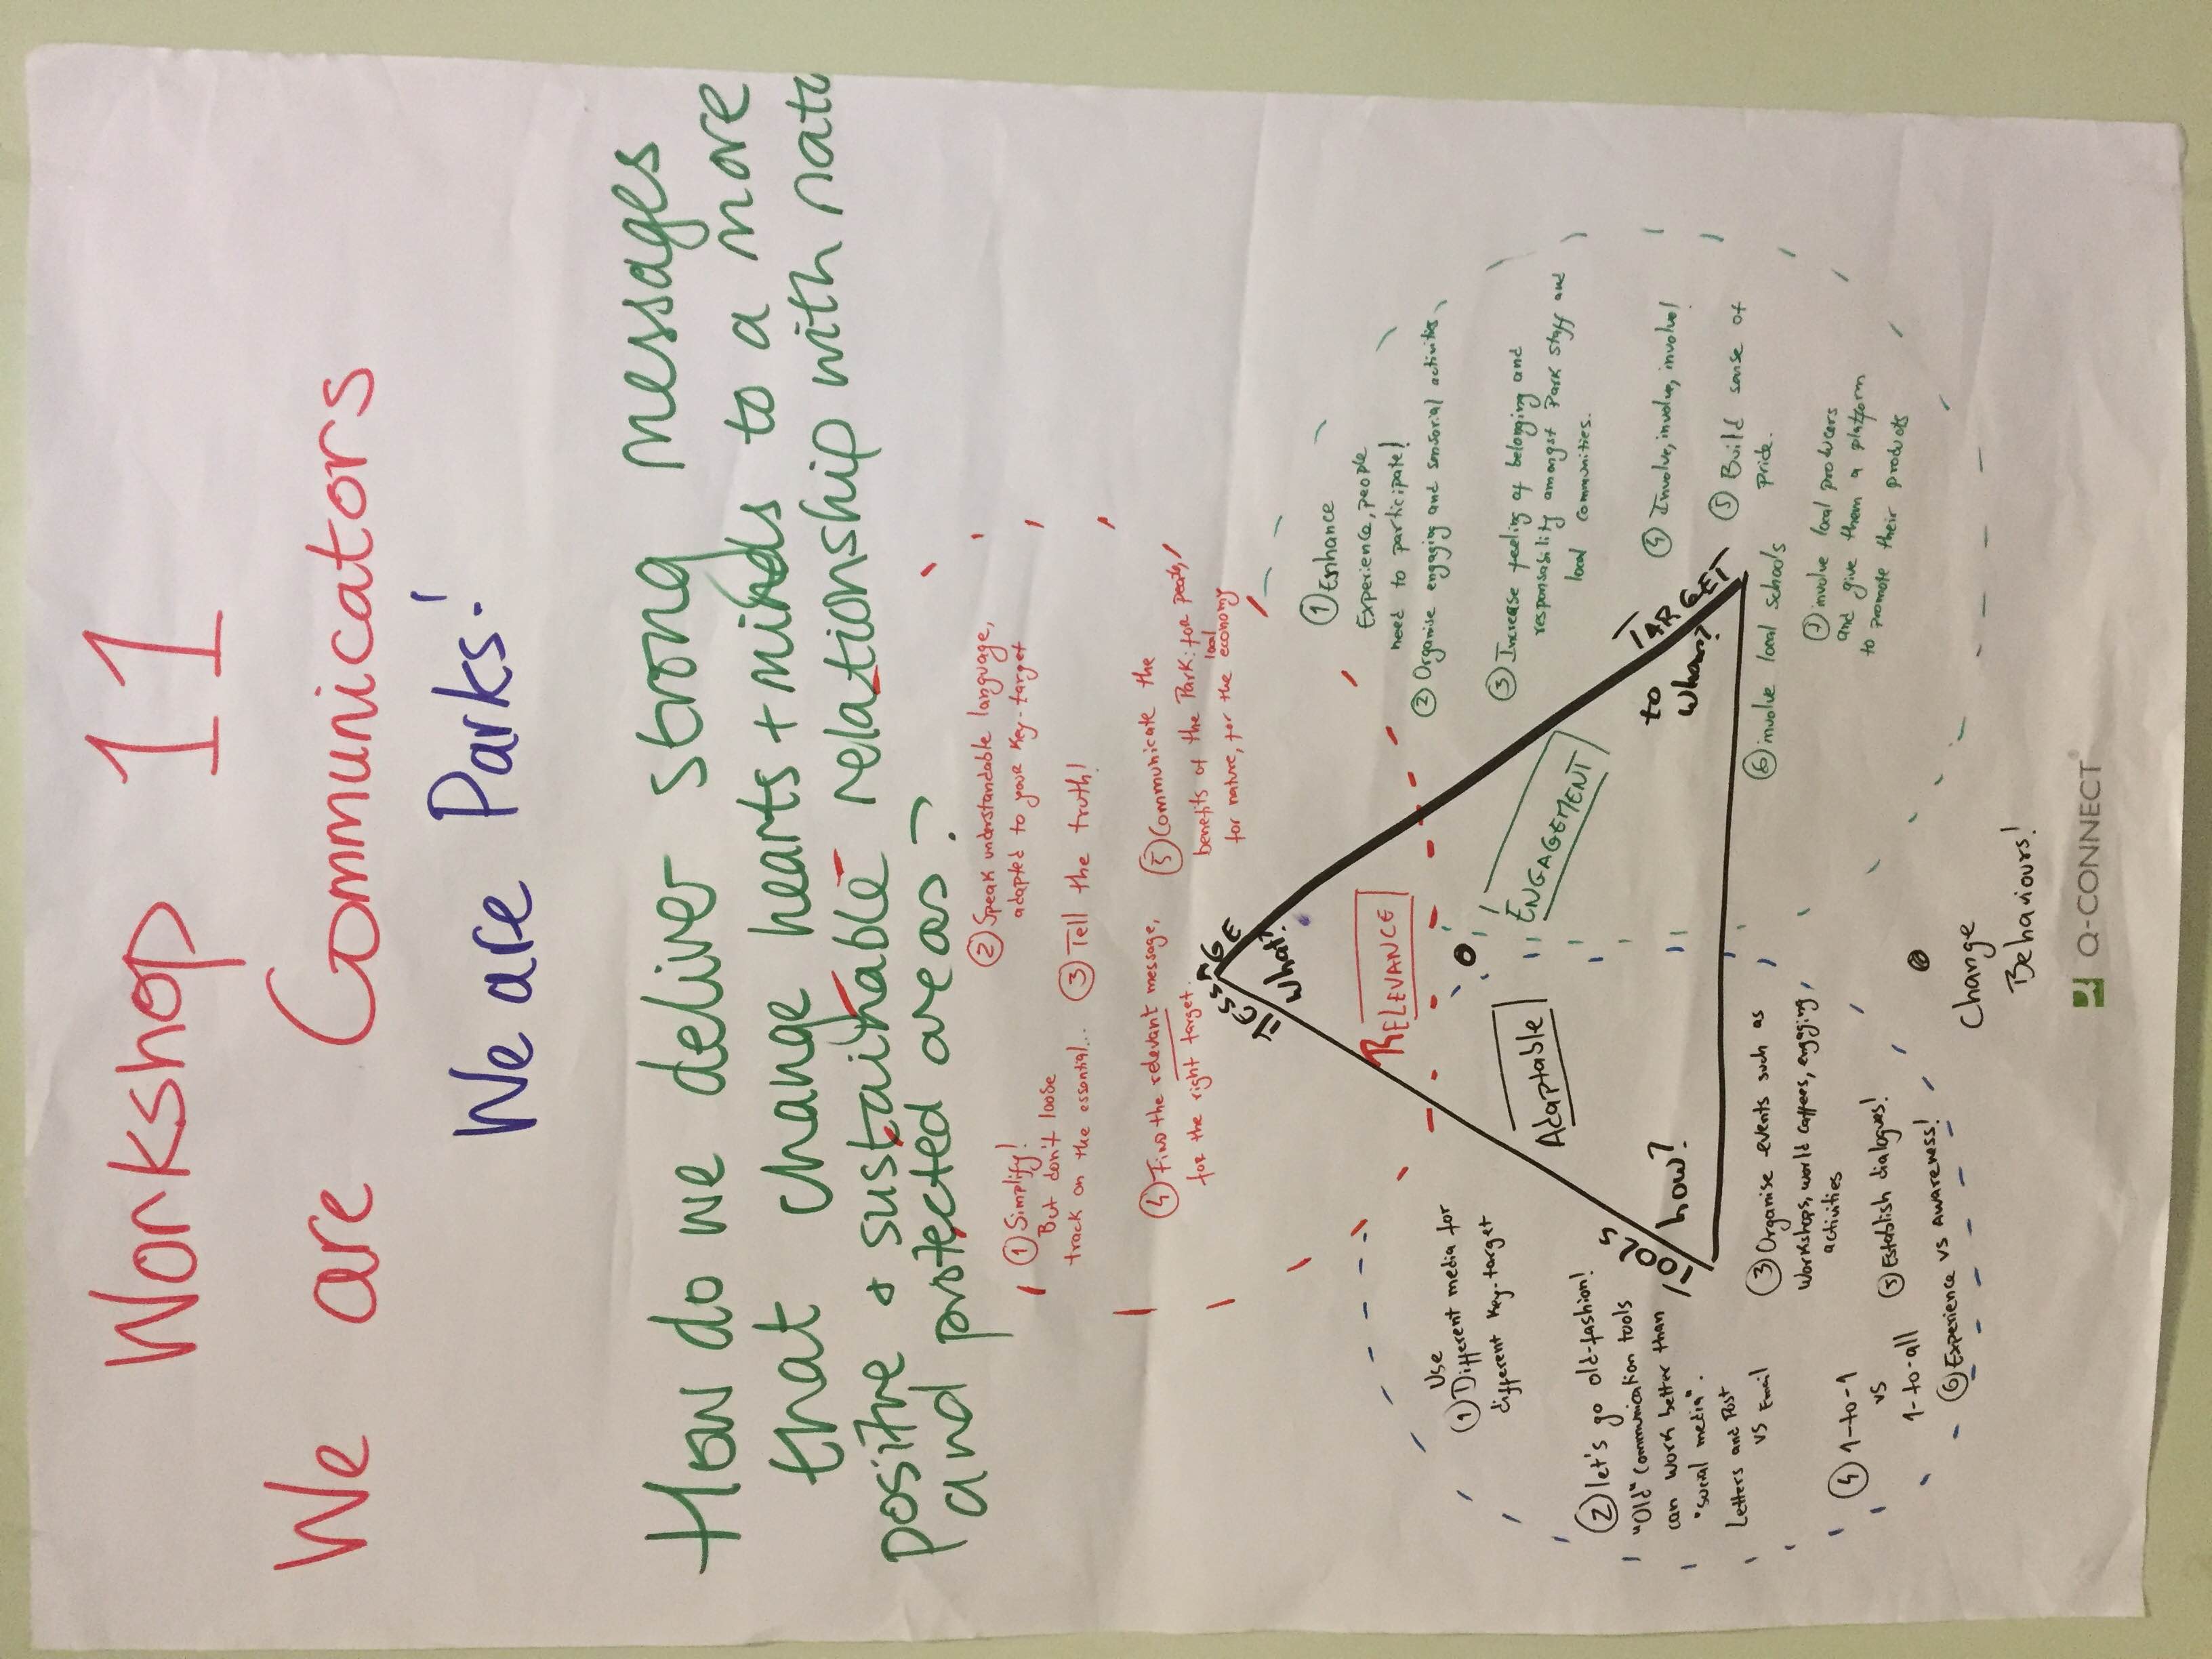 Workshop 11
We are Communicators
We are Parks!
How do we deliver strong messages
that change hearts + minds to a more
positive & sustainable relationship with natu
and protected areas?
② Speak understandable language,
adapted to your key-target
① Simplify!
But don't loose
track on the essential...
③ Tell the truth!
④ Find the relevant message,
for the right target.
⑤ Communicate the
benefits of the Park: for people,
for nature, for the local economy
MESSAGE
What?
RELEVANCE
① Enhance
Experience, people
need to participate!
② Organise engaging and sensorial activities
③ Increase feeling of belonging and
responsability amongst Park staff and
local communities.
④ Involve, involve, involve!
⑤ Build sense of
pride.
⑥ involve local schools
⑦ involve local producers
and give them a platform
to promote their products
ENGAGEMENT
TARGET
to
Whom?
Adaptable
how?
TOOLS
Use
① Different media for
different key-target
② let's go old-fashion!
"Old" communication tools
can work better than
"social media".
Letters and Post
vs Email
③ Organise events such as
Workshops, world caffees, engaging
activities
④ 1-to-1
vs
1-to-all
⑤ Establish dialogues!
⑥ Experience vs Awareness!
Change
Behaviours!
Q-CONNECT®